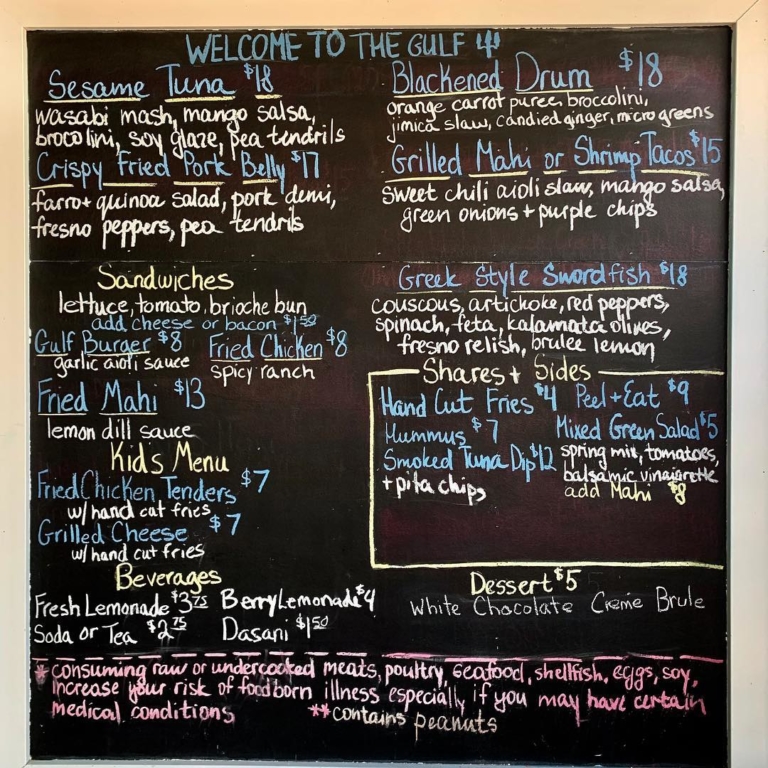 WELCOME TO THE GULF
Sesame Tuna $18
wasabi mash, mango salsa,
brocolini, soy glaze, pea tendrils
Crispy Fried Pork Belly $17
farro + quinoa salad, pork demi,
fresno peppers, pea tendrils
Blackened Drum $18
orange carrot puree, broccolini,
jimica slaw, candied ginger, micro greens
Grilled Mahi or Shrimp Tacos $15
sweet chili aioli slaw, mango salsa,
green onions + purple chips
Sandwiches
lettuce, tomato, brioche bun
add cheese or bacon $1.50
Gulf Burger $8
garlic aioli sauce
Fried Chicken $8
spicy ranch
Fried Mahi $13
lemon dill sauce
Kid's Menu
Fried Chicken Tenders $7
w/ hand cut fries
Grilled Cheese $7
w/ hand cut fries
Beverages
Fresh Lemonade $3.75 Berry Lemonade $4
Soda or Tea $2.75 Dasani $1.50
Greek Style Swordfish $18
couscous, artichoke, red peppers,
spinach, feta, kalamata olives,
fresno relish, brulee lemon
Shares + Sides
Hand Cut Fries $4
Hummus $7
Smoked Tuna Dip $12
+ pita chips
Peel + Eat $9
Mixed Green Salad $5
spring mix, tomatoes,
balsamic vinaigrette
add Mahi $8
Dessert $5
White Chocolate Creme Brule
*consuming raw or undercooked meats, poultry, seafood, shellfish, eggs, soy,
increase your risk of foodborn illness especially if you may have certain
medical conditions **contains peanuts